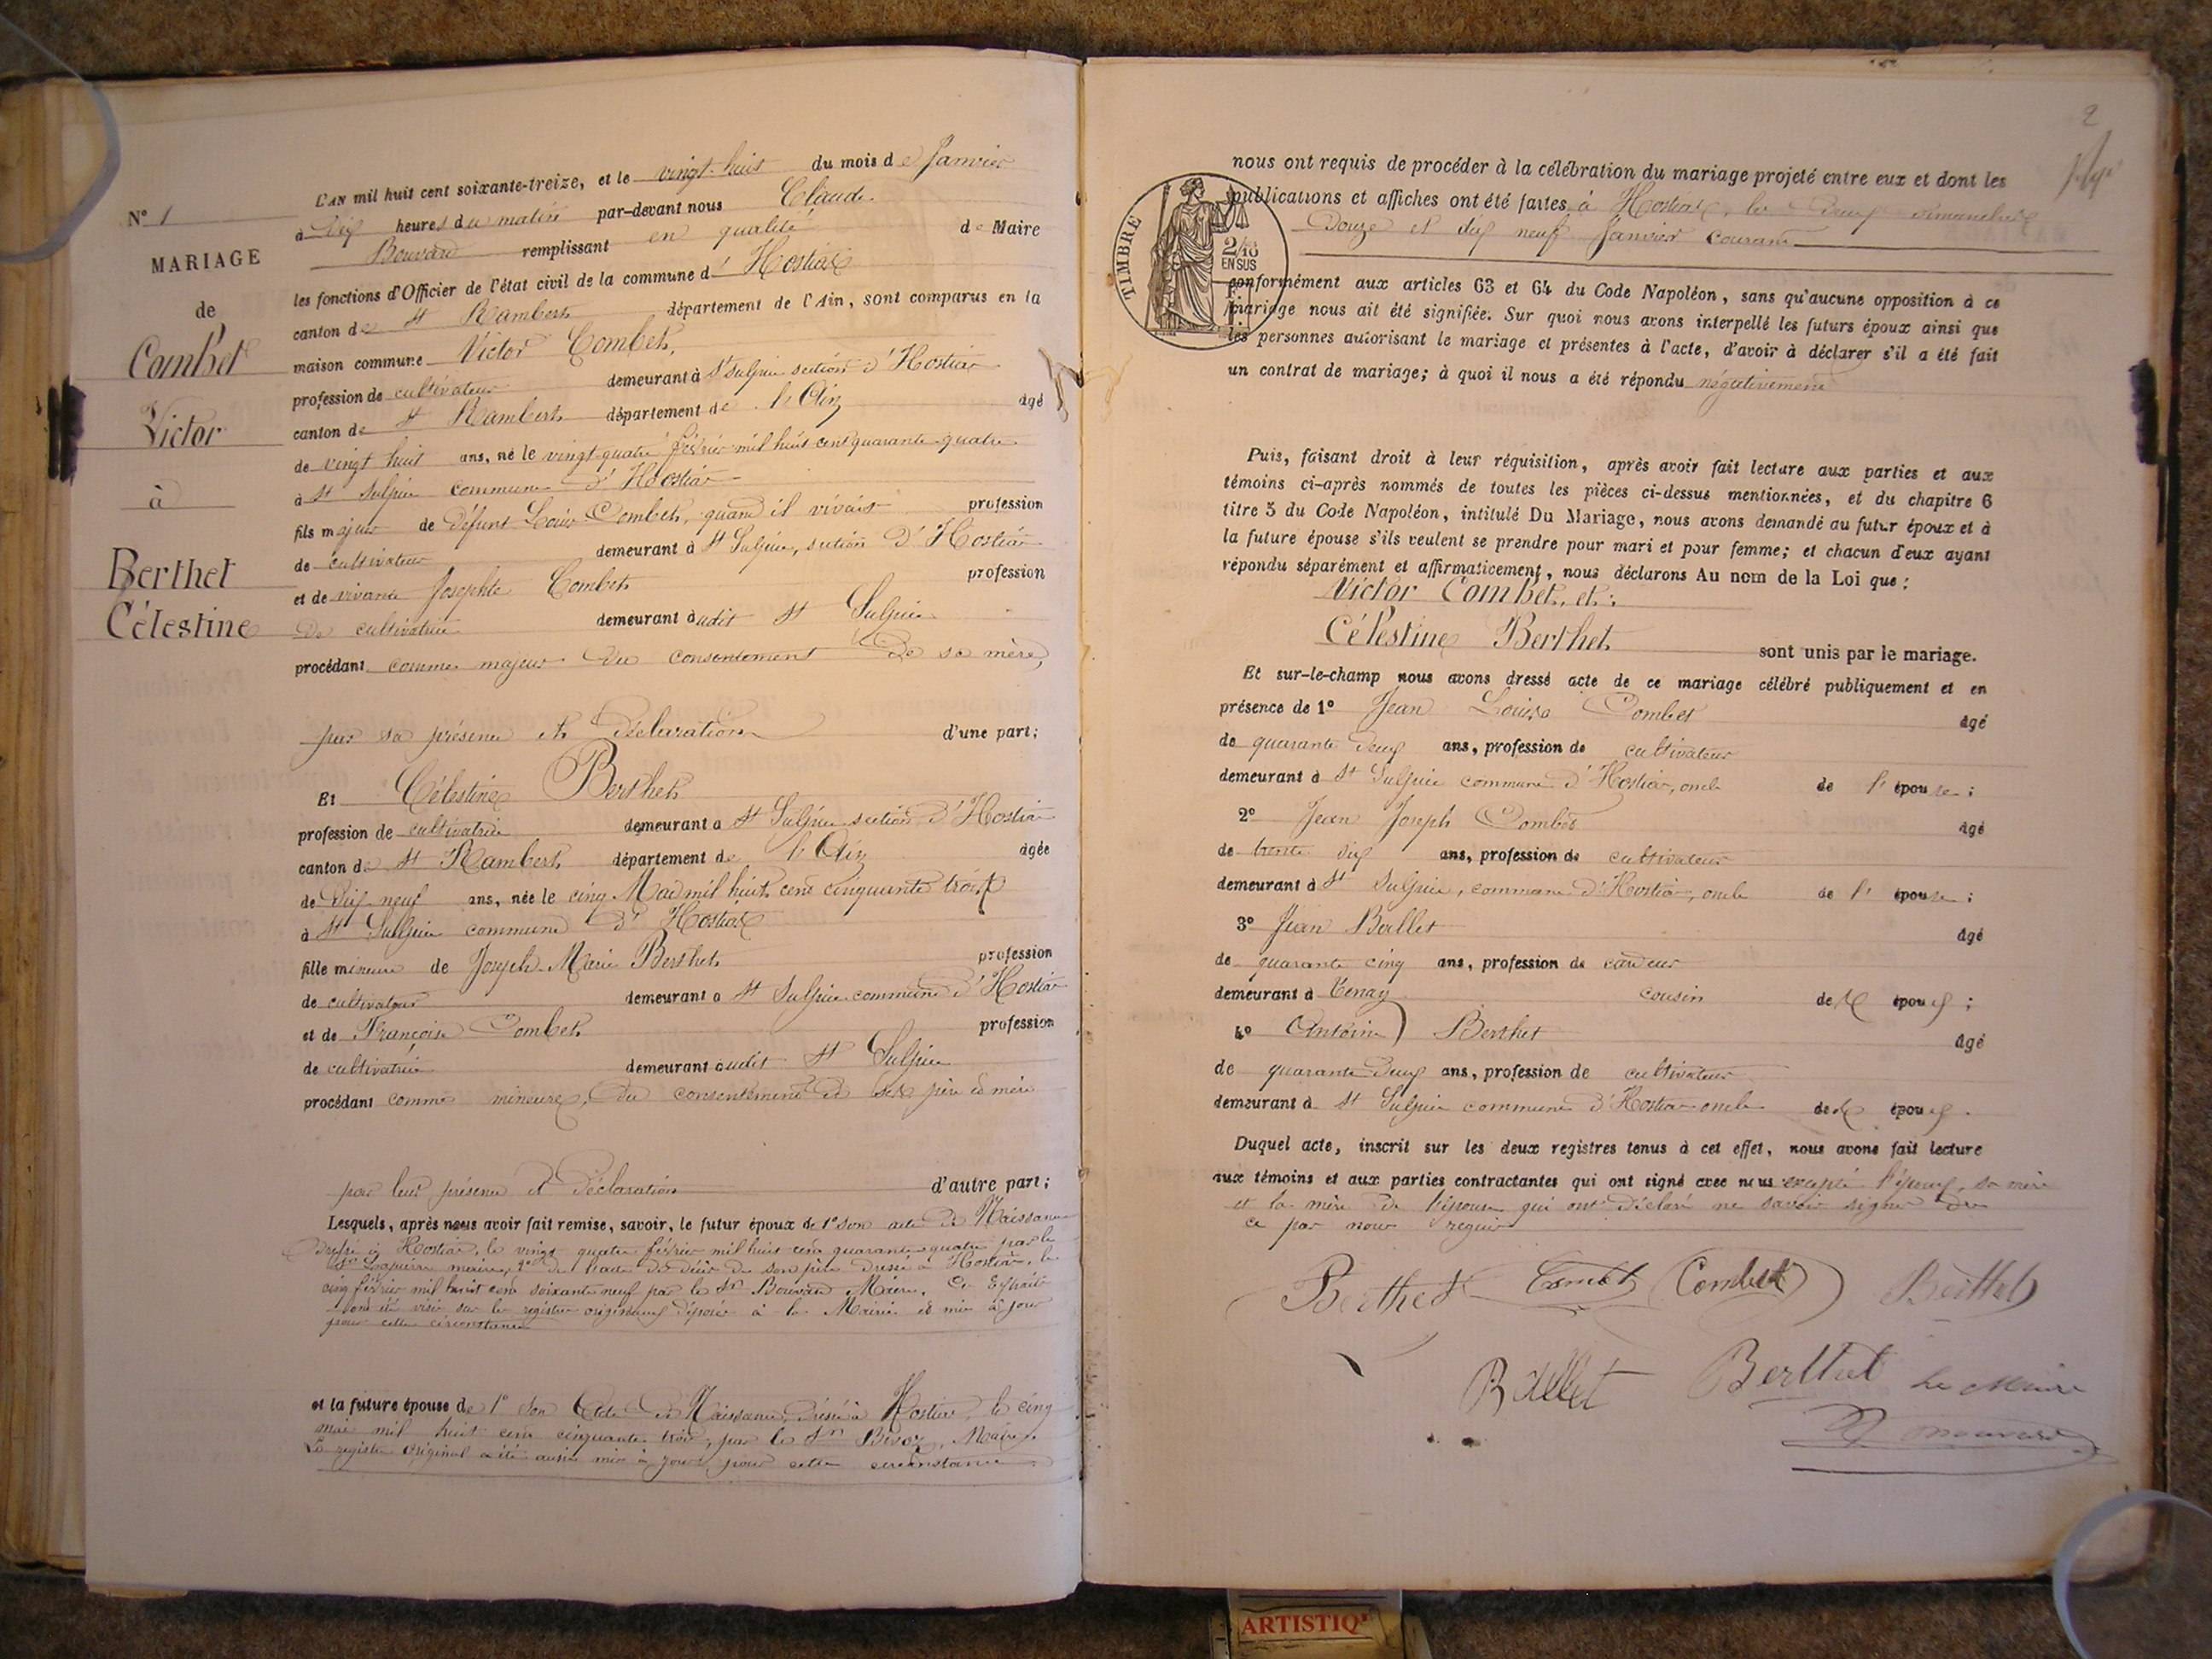 N° 1
MARIAGE
de
Combet
Victor
à
Berthet
Célestine
L'AN mil huit cent soixante-treize, et le vingt-huit du mois de Janvier
à dix heures du matin par-devant nous Claude
Bouvard remplissant en qualité de Maire
les fonctions d'Officier de l'état civil de la commune d'Hostiaz
canton de St Rambert département de l'Ain, sont comparus en la
maison commune Victor Combet,
profession de cultivateur demeurant à St Sulpice section d'Hostiaz
canton de St Rambert département de l'Ain âgé
de vingt huit ans, né le vingt-quatre février mil huit cent quarante-quatre
à St Sulpice commune d'Hostiaz
fils majeur de défunt Louis Combet, quand il vivait profession
de cultivateur demeurant à St Sulpice, section d'Hostiaz
et de vivante Josephte Combet profession
de cultivatrice demeurant audit St Sulpice
procédant comme majeur du consentement de sa mère,
par sa présence et déclaration d'une part;
Et Célestine Berthet
profession de cultivatrice demeurant à St Sulpice section d'Hostiaz
canton de St Rambert département de l'Ain âgée
de dix-neuf ans, née le cinq Mai mil huit cent cinquante trois
à St Sulpice commune d'Hostiaz
fille mineure de Joseph-Marie Berthet profession
de cultivateur demeurant à St Sulpice commune d'Hostiaz
et de Françoise Combet profession
de cultivatrice demeurant audit St Sulpice
procédant comme mineure, du consentement de ses père et mère
par leur présence et déclaration d'autre part;
Lesquels, après nous avoir fait remise, savoir, le futur époux de 1° son acte de Naissance
dressé à Hostiaz, le vingt quatre février mil huit cent quarante-quatre par le
Sr Lapierre maire, 2° de l'acte de décès de son père dressé à Hostiaz, le
cinq février mil huit cent soixante neuf par le Sr Bouvard Maire. Ces Extraits
ont été visés sur les registres originaux déposés à la Mairie et mis à jour
pour cette circonstance
et la future épouse de 1° son Acte de Naissance, dressé à Hostiaz, le cinq
mai mil huit cent cinquante trois, par le Sr Maire.
Le registre original a été aussi mis à jour pour cette circonstance
2
nous ont requis de procéder à la célébration du mariage projeté entre eux et dont les
publications et affiches ont été faites à Hostiaz, les deux dimanches
Douze et dix neuf Janvier courant
TIMBRE
2/10
EN SUS
conformément aux articles 63 et 64 du Code Napoléon, sans qu'aucune opposition à ce
mariage nous ait été signifiée. Sur quoi nous avons interpellé les futurs époux ainsi que
les personnes autorisant le mariage et présentes à l'acte, d'avoir à déclarer s'il a été fait
un contrat de mariage; à quoi il nous a été répondu négativement
Puis, faisant droit à leur réquisition, après avoir fait lecture aux parties et aux
témoins ci-après nommés de toutes les pièces ci-dessus mentionnées, et du chapitre 6
titre 5 du Code Napoléon, intitulé Du Mariage, nous avons demandé au futur époux et à
la future épouse s'ils veulent se prendre pour mari et pour femme; et chacun d'eux ayant
répondu séparément et affirmativement, nous déclarons Au nom de la Loi que:
Victor Combet, et:
Célestine Berthet sont unis par le mariage.
Et sur-le-champ nous avons dressé acte de ce mariage célébré publiquement et en
présence de 1° Jean Louis Combet âgé
de quarante deux ans, profession de cultivateur
demeurant à St Sulpice commune d'Hostiaz, oncle de l'épouse;
2° Jean Joseph Combet âgé
de trente dix ans, profession de cultivateur
demeurant à St Sulpice, commune d'Hostiaz, oncle de l'épouse;
3° Jean Ballet âgé
de quarante cinq ans, profession de cardeur
demeurant à Tenay cousin de l'époux;
4° Antoine Berthet âgé
de quarante deux ans, profession de cultivateur
demeurant à St Sulpice commune d'Hostiaz oncle de l'époux.
Duquel acte, inscrit sur les deux registres tenus à cet effet, nous avons fait lecture
aux témoins et aux parties contractantes qui ont signé avec nous excepté l'époux, sa mère
et la mère de l'épouse qui ont déclaré ne savoir signer de
ce par nous requis
Berthet Combet Combet Berthet
Ballet Berthet Le Maire
Bouvard
ARTISTIQ